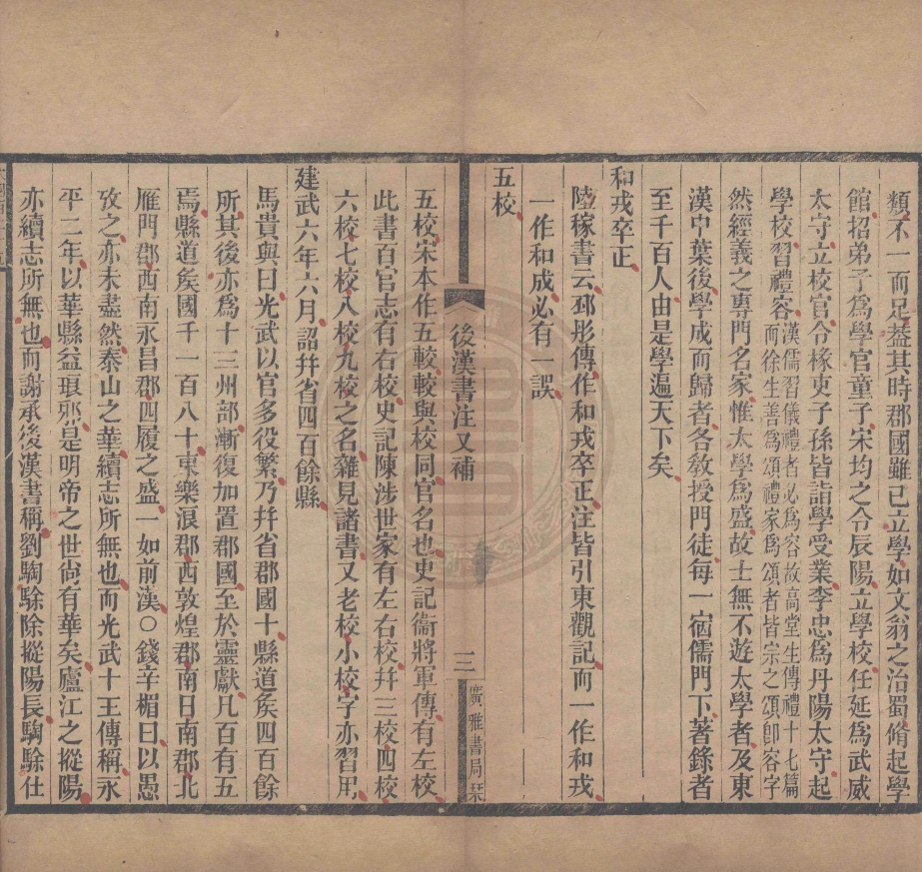 類不一而足葢其時郡國雖已立學如文翁之治蜀脩起學
館招弟子爲學官童子宋均之令辰陽立學校任延爲武威
太守立校官令掾吏子孫皆詣學受業李忠爲丹陽太守起
學校習禮容漢儒習儀禮者必爲容故高堂生傳禮十七篇
而徐生善爲頌禮家爲頌者皆宗之頌卽容字
然經義之專門名家惟太學爲盛故士無不遊太學者及東
漢中葉後學成而歸者各敎授門徒每一宿儒門下著錄者
至千百人由是學遍天下矣
和戎卒正
陸稼書云邳彤傳作和戎卒正注皆引東觀記而一作和戎
一作和成必有一誤
五校
後漢書注又補
三
廣雅書局栞
五校宋本作五較較與校同官名也史記衞將軍傳有左校
此書百官志有右校史記陳涉世家有左右校幷三校四校
六校七校八校九校之名雜見諸書又老校小校字亦習用
建武六年六月詔幷省四百餘縣
馬貴與曰光武以官多役繁乃幷省郡國十縣道矦四百餘
所其後亦爲十三州部漸復加置郡國至於靈獻凡百有五
焉縣道矦國千一百八十東樂浪郡西敦煌郡南日南郡北
雁門郡西南永昌郡四履之盛一如前漢〇錢辛楣曰以愚
攷之亦未盡然泰山之華續志所無也而光武十王傳稱永
平二年以華縣益琅邪是明帝之世尙有華矣廬江之樅陽
亦續志所無也而謝承後漢書稱劉騊駼除樅陽長騊駼仕